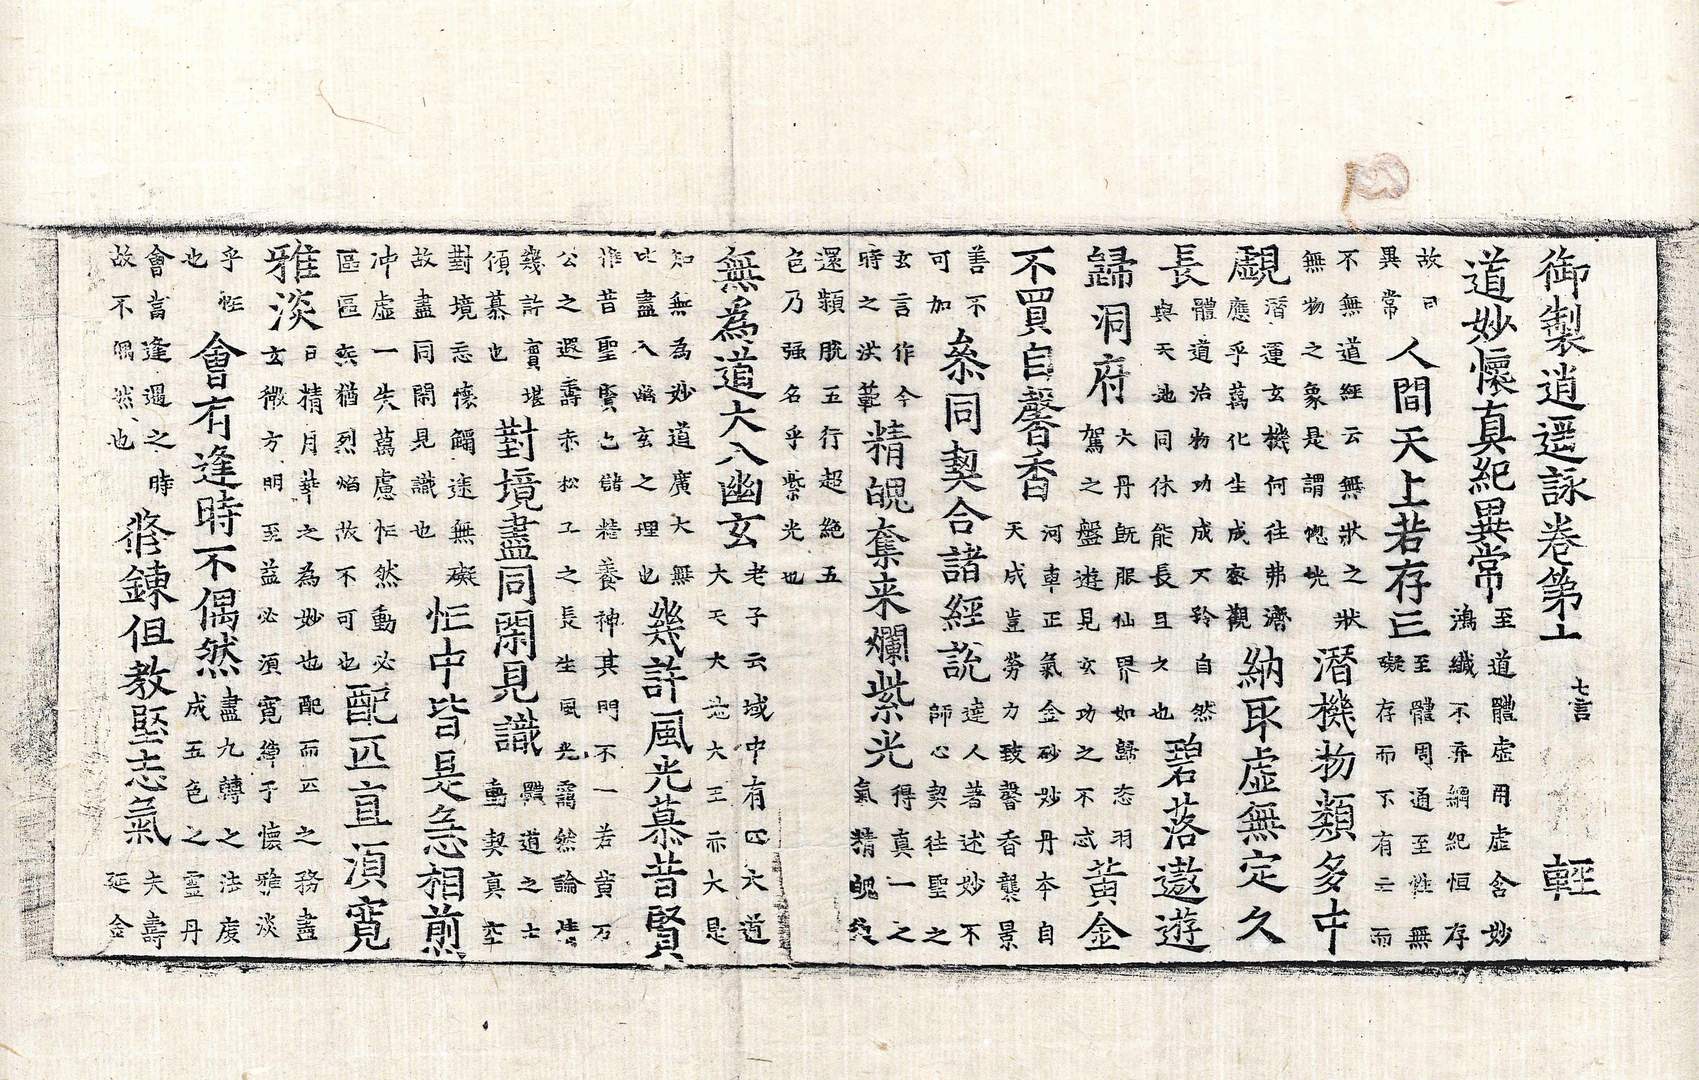 御製逍遥詠卷第十一 七言 輕
道妙懷真紀異常 至道體虛用虛含妙
鴻纖不弃綱紀恒存
故曰
異常 人間天上若存亡 至體周通至性無
礙存而不有亡而
不無道經云無狀之狀
無物之象是謂惚恍 潛機物類多中
覷 潛運玄機何往弗濟
應乎萬化生成家觀 納取虛無定久
長 體道治物功成不矜自然
與天地同休能長且久也 碧落遨遊
歸洞府 大丹既服仙界如歸恣羽
駕之盤遊見玄功之不忒 黃金
不買自馨香 河車正氣金砂妙丹本自
天成豈勞力致馨香襲景
善不
可加 叅同契合諸經說 達人著述妙不
師心契往聖之
玄言作今
時之洪範 精魄奪来爛紫光 得真一之
氣精魄
還類脫五行超絶五
色乃强名乎紫光也
無為道大入幽玄 老子云域中有四大道
大天大地大王亦大是
知無為妙道廣大無
盡入幽玄之理也 幾許風光慕昔賢
惟昔聖賢儲精養神其門不一若黃石
公之遐壽赤松子之長生風光靄然論
幾許賣堪
傾慕也 對境盡同閑見識 體道之士
動契真空
對境忘懷觸途無礙
故盡同閑見識也 忙中皆是急相煎
冲虛一失萬慮忙然動必
區區炁猶烈焰故不可也 配匹直須寬
雅淡 日精月華之為妙也配而匹之務盡
玄微方明至益必須寬綽予懷雅淡
乎性
也 會有逢時不偶然 盡九轉之法度
成五色之靈丹
會者逢遇之時
故不偶然也 修鍊但教堅志氣 夫壽
延金